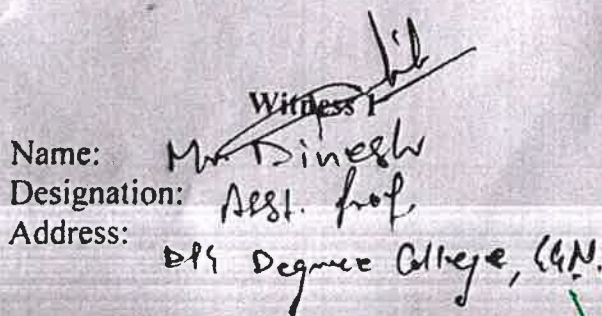 Witness 1
Name: Mr. Dinesh
Designation: Asst. Prof.
Address:
DPG Degree College, GGN.